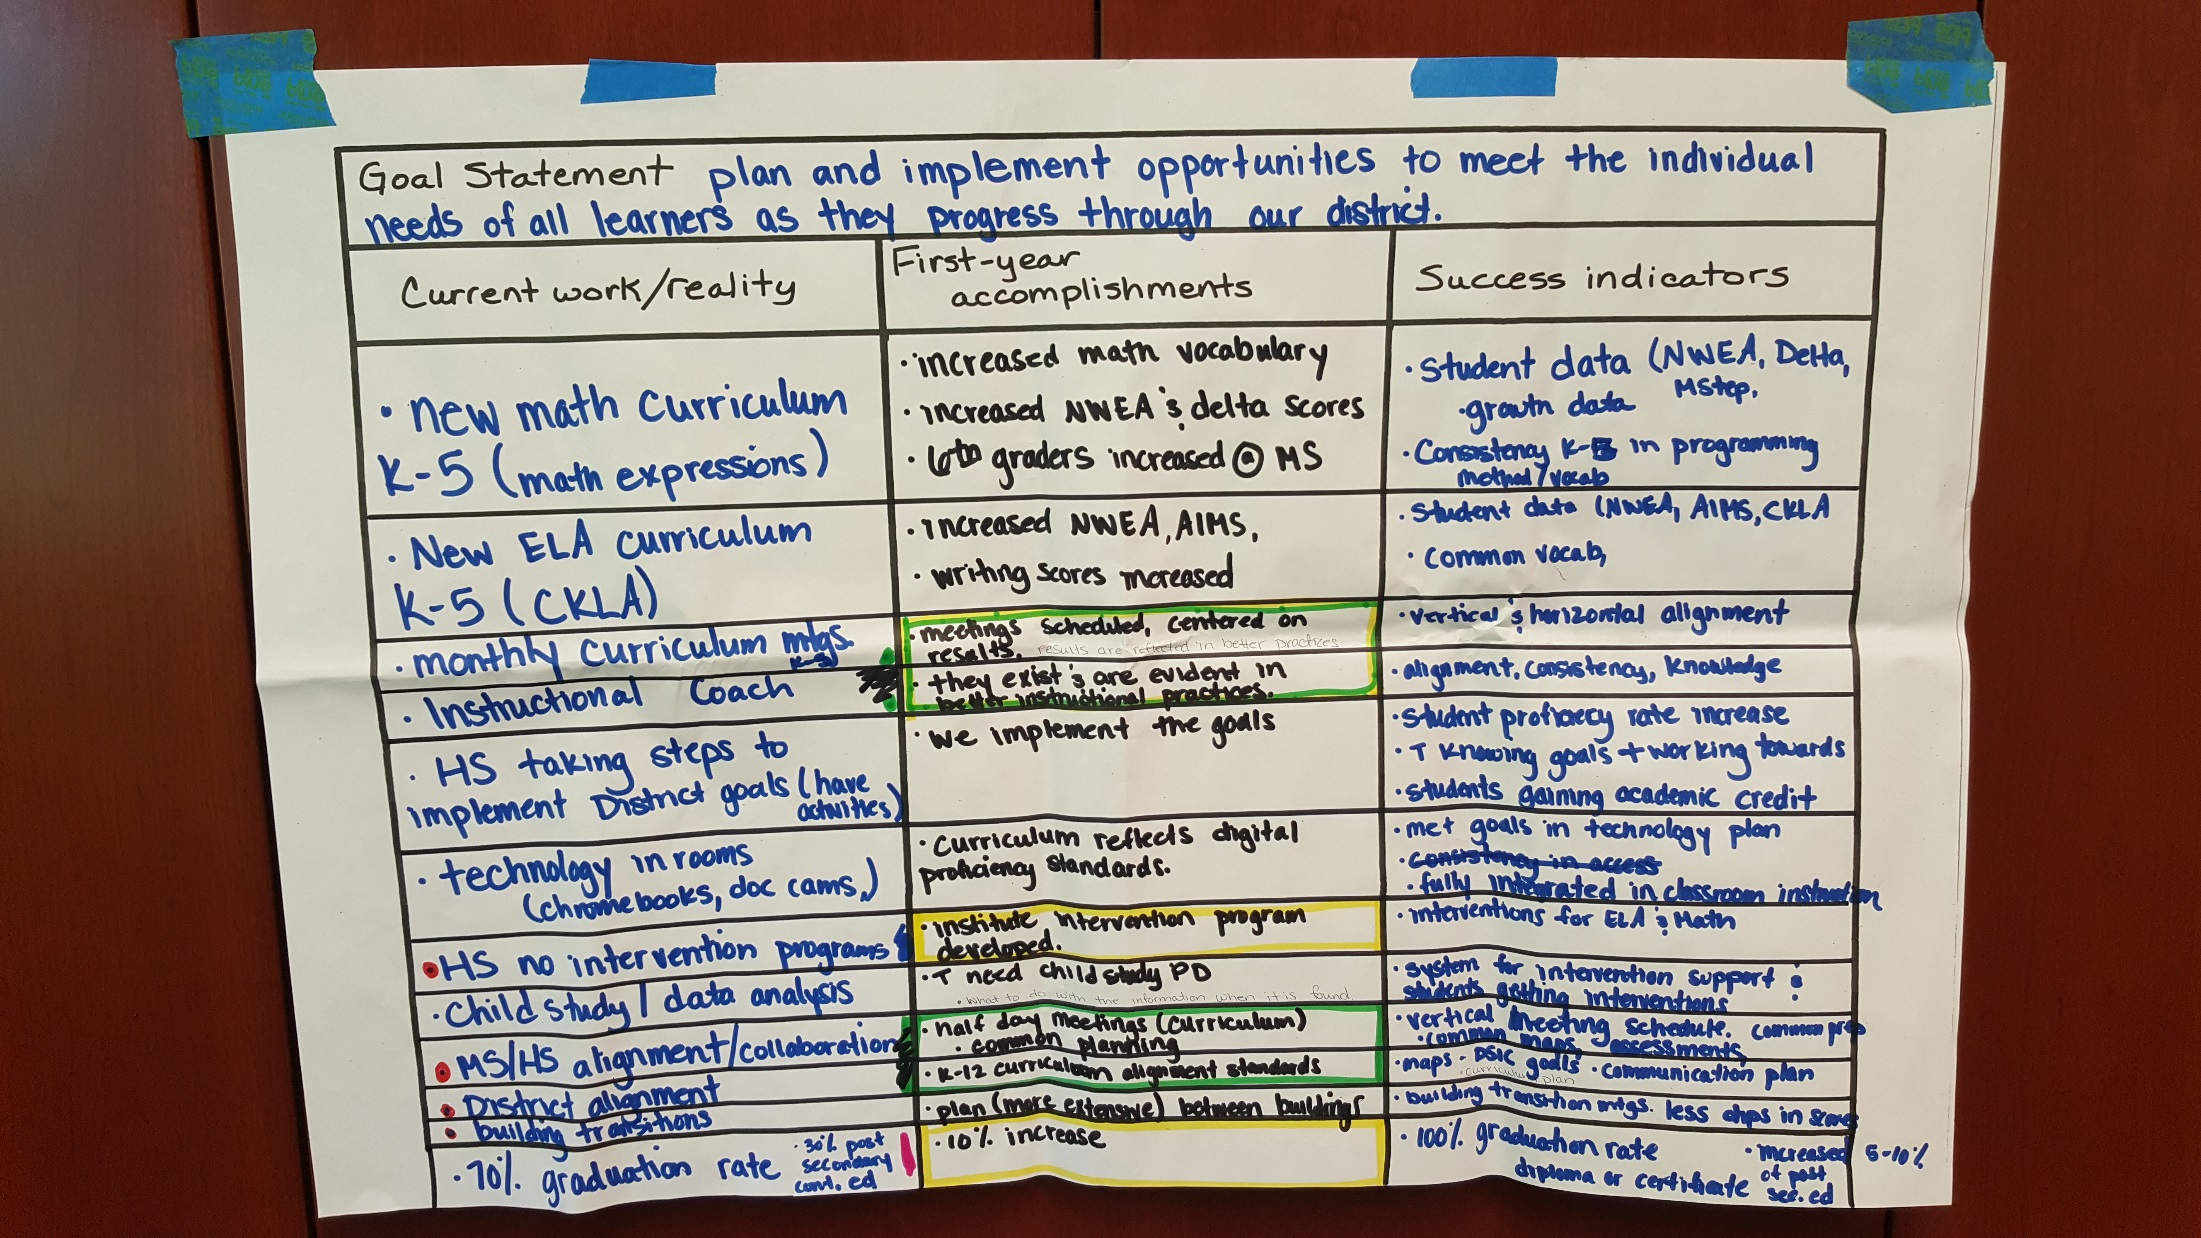 Goal Statement plan and implement opportunities to meet the individual
needs of all learners as they progress through our district.
Current work/reality
First-year
accomplishments
Success indicators
• new math curriculum
K-5 (math expressions)
• increased math vocabulary
• increased NWEA & delta scores
• 6th graders increased @ MS
• Student data (NWEA, Delta,
MStep,
• growth data
• Consistency K-5 in programming
method/vocab
• New ELA curriculum
K-5 (CKLA)
• increased NWEA, AIMS,
• writing scores increased
• Student data (NWEA, AIMS, CKLA
• common vocab,
• monthly curriculum mtgs.
• meetings scheduled, centered on
results. results are reflected in better practices
• vertical & horizontal alignment
• Instructional Coach
• they exist & are evident in
better instructional practices.
• alignment, consistency, knowledge
• HS taking steps to
implement District goals (have
activities)
• we implement the goals
• Student proficiecy rate increase
• T knowing goals + working towards
• students gaining academic credit
• technology in rooms
(chromebooks, doc cams,)
• Curriculum reflects digital
proficiency standards.
• met goals in technology plan
• consistency in access
• fully integrated in classroom instruction
• HS no intervention programs
• institute intervention program
developed.
• interventions for ELA & Math
• Child study / data analysis
• T need child study PD
• what to do with the information when it is found.
• system for intervention support &
students getting interventions
• MS/HS alignment/collaboration
• half day meetings (curriculum)
• common planning
• vertical meeting schedule. common
• common maps, assessments,
• District alignment
• K-12 curriculum alignment standards
• maps - DSIC goals • communication plan
• curriculum plan
• building transitions
• plan (more extensive) between buildings
• building transition mtgs. less dips in scores
• 70% graduation rate
• 30% post
secondary
cont. ed
• 10% increase
• 100% graduation rate
diploma or certificate
• increased 5-10%
of post
sec. ed